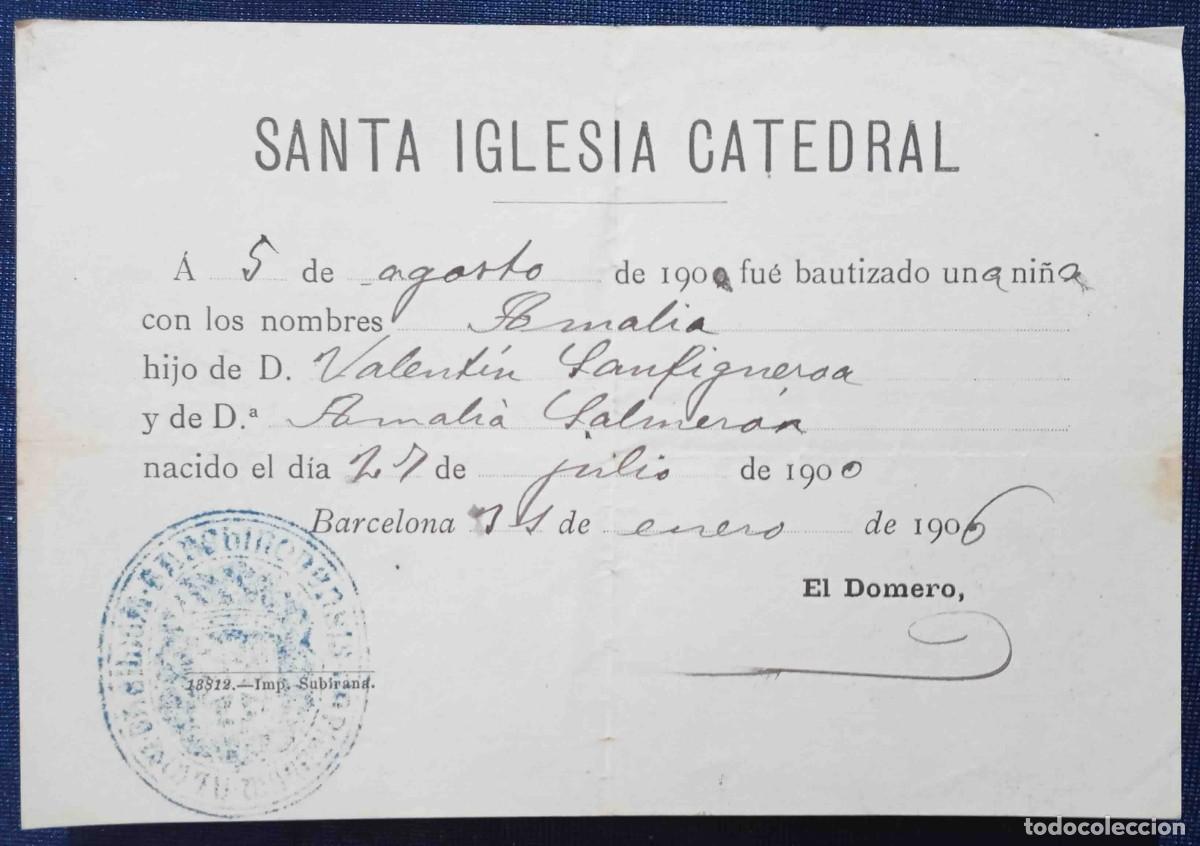 SANTA IGLESIA CATEDRAL
Á 5 de agosto de 1900 fué bautizado una niña
con los nombres Amalia
hijo de D. Valentín Sanfigueroa
y de D.ª Amalia Salmerón
nacido el día 27 de julio de 1900
Barcelona 11 de enero de 1906
El Domero,
13812.—Imp. Subirana.
todocoleccion